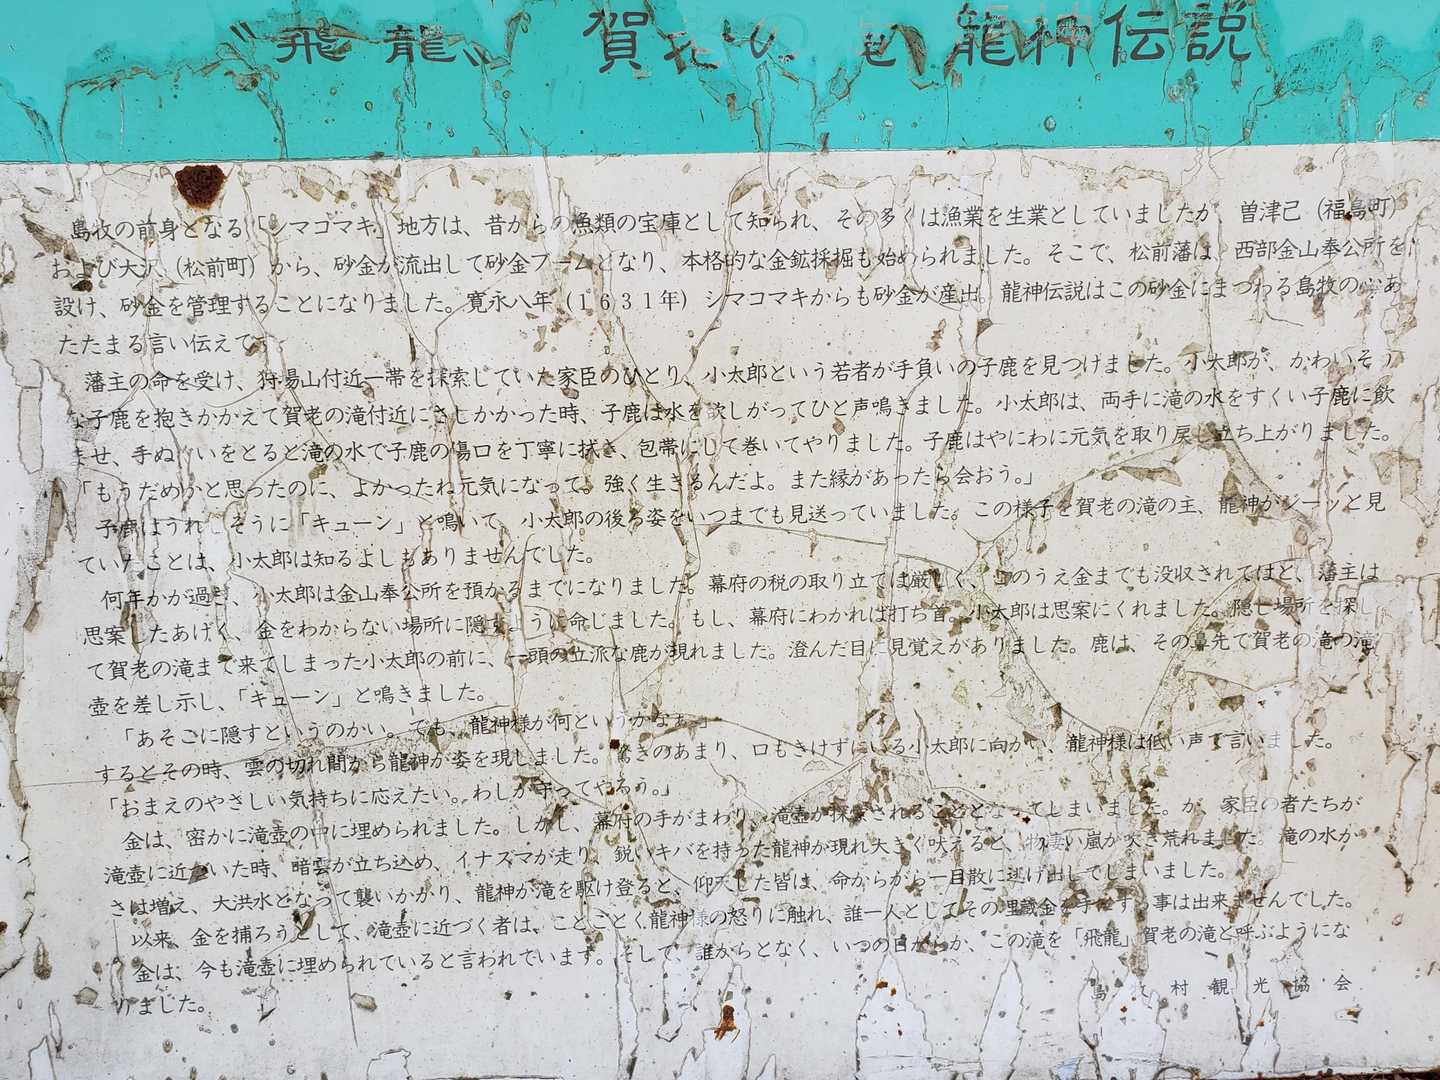 〝飛龍〟 賀老の滝 龍神伝説
島牧の前身となる「シマコマキ」地方は、昔からの魚類の宝庫として知られ、その多くは漁業を生業としていましたが、曽津己（福島町）
および大沢（松前町）から、砂金が流出して砂金ブームとなり、本格的な金鉱採掘も始められました。そこで、松前藩は、西部金山奉公所を
設け、砂金を管理することになりました。寛永八年（１６３１年）シマコマキからも砂金が産出。龍神伝説はこの砂金にまつわる島牧の心あ
たたまる言い伝えです。
藩主の命を受け、狩場山付近一帯を探索していた家臣のひとり、小太郎という若者が手負いの子鹿を見つけました。小太郎が、かわいそう
な子鹿を抱きかかえて賀老の滝付近にさしかかった時、子鹿は水を欲しがってひと声鳴きました。小太郎は、両手に滝の水をすくい子鹿に飲
ませ、手ぬぐいをとると滝の水で子鹿の傷口を丁寧に拭き、包帯にして巻いてやりました。子鹿はやにわに元気を取り戻し立ち上がりました。
「もうだめかと思ったのに、よかったね元気になって。強く生きるんだよ。また縁があったら会おう。」
子鹿はうれしそうに「キューン」と鳴いて、小太郎の後ろ姿をいつまでも見送っていました。この様子を賀老の滝の主、龍神がジーッと見
ていたことは、小太郎は知るよしもありませんでした。
何年かが過ぎ、小太郎は金山奉公所を預かるまでになりました。幕府の税の取り立ては厳しく、このうえ金までも没収されてはと、藩主は
思案したあげく、金をわからない場所に隠すように命じました。もし、幕府にわかれば打ち首。小太郎は思案にくれました。隠し場所を探し
て賀老の滝まで来てしまった小太郎の前に、一頭の立派な鹿が現れました。澄んだ目に見覚えがありました。鹿は、その鼻先で賀老の滝の滝
壺を差し示し、「キューン」と鳴きました。
「あそこに隠すというのかい。でも、龍神様が何というかなぁ。」
するとその時、雲の切れ間から龍神が姿を現しました。驚きのあまり、口もきけずにいる小太郎に向かい、龍神様は低い声で言いました。
「おまえのやさしい気持ちに応えたい。わしが守ってやろう。」
金は、密かに滝壺の中に埋められました。しかし、幕府の手がまわり、滝壺が探索されることとなってしまいました。が、家臣の者たちが
滝壺に近づいた時、暗雲が立ち込め、イナズマが走り、鋭いキバを持った龍神が現れ大きく吠えると、物凄い嵐が吹き荒れました。滝の水か
さは増え、大洪水となって襲いかかり、龍神が滝を駆け登ると、仰天した皆は、命からがら一目散に逃げ出してしまいました。
以来、金を捕ろうとして、滝壺に近づく者は、ことごとく龍神様の怒りに触れ、誰一人としてその埋蔵金を手にする事は出来ませんでした。
金は、今も滝壺に埋められていると言われています。そして、誰からとなく、いつの日からか、この滝を「飛龍」賀老の滝と呼ぶようにな
りました。
島牧村観光協会